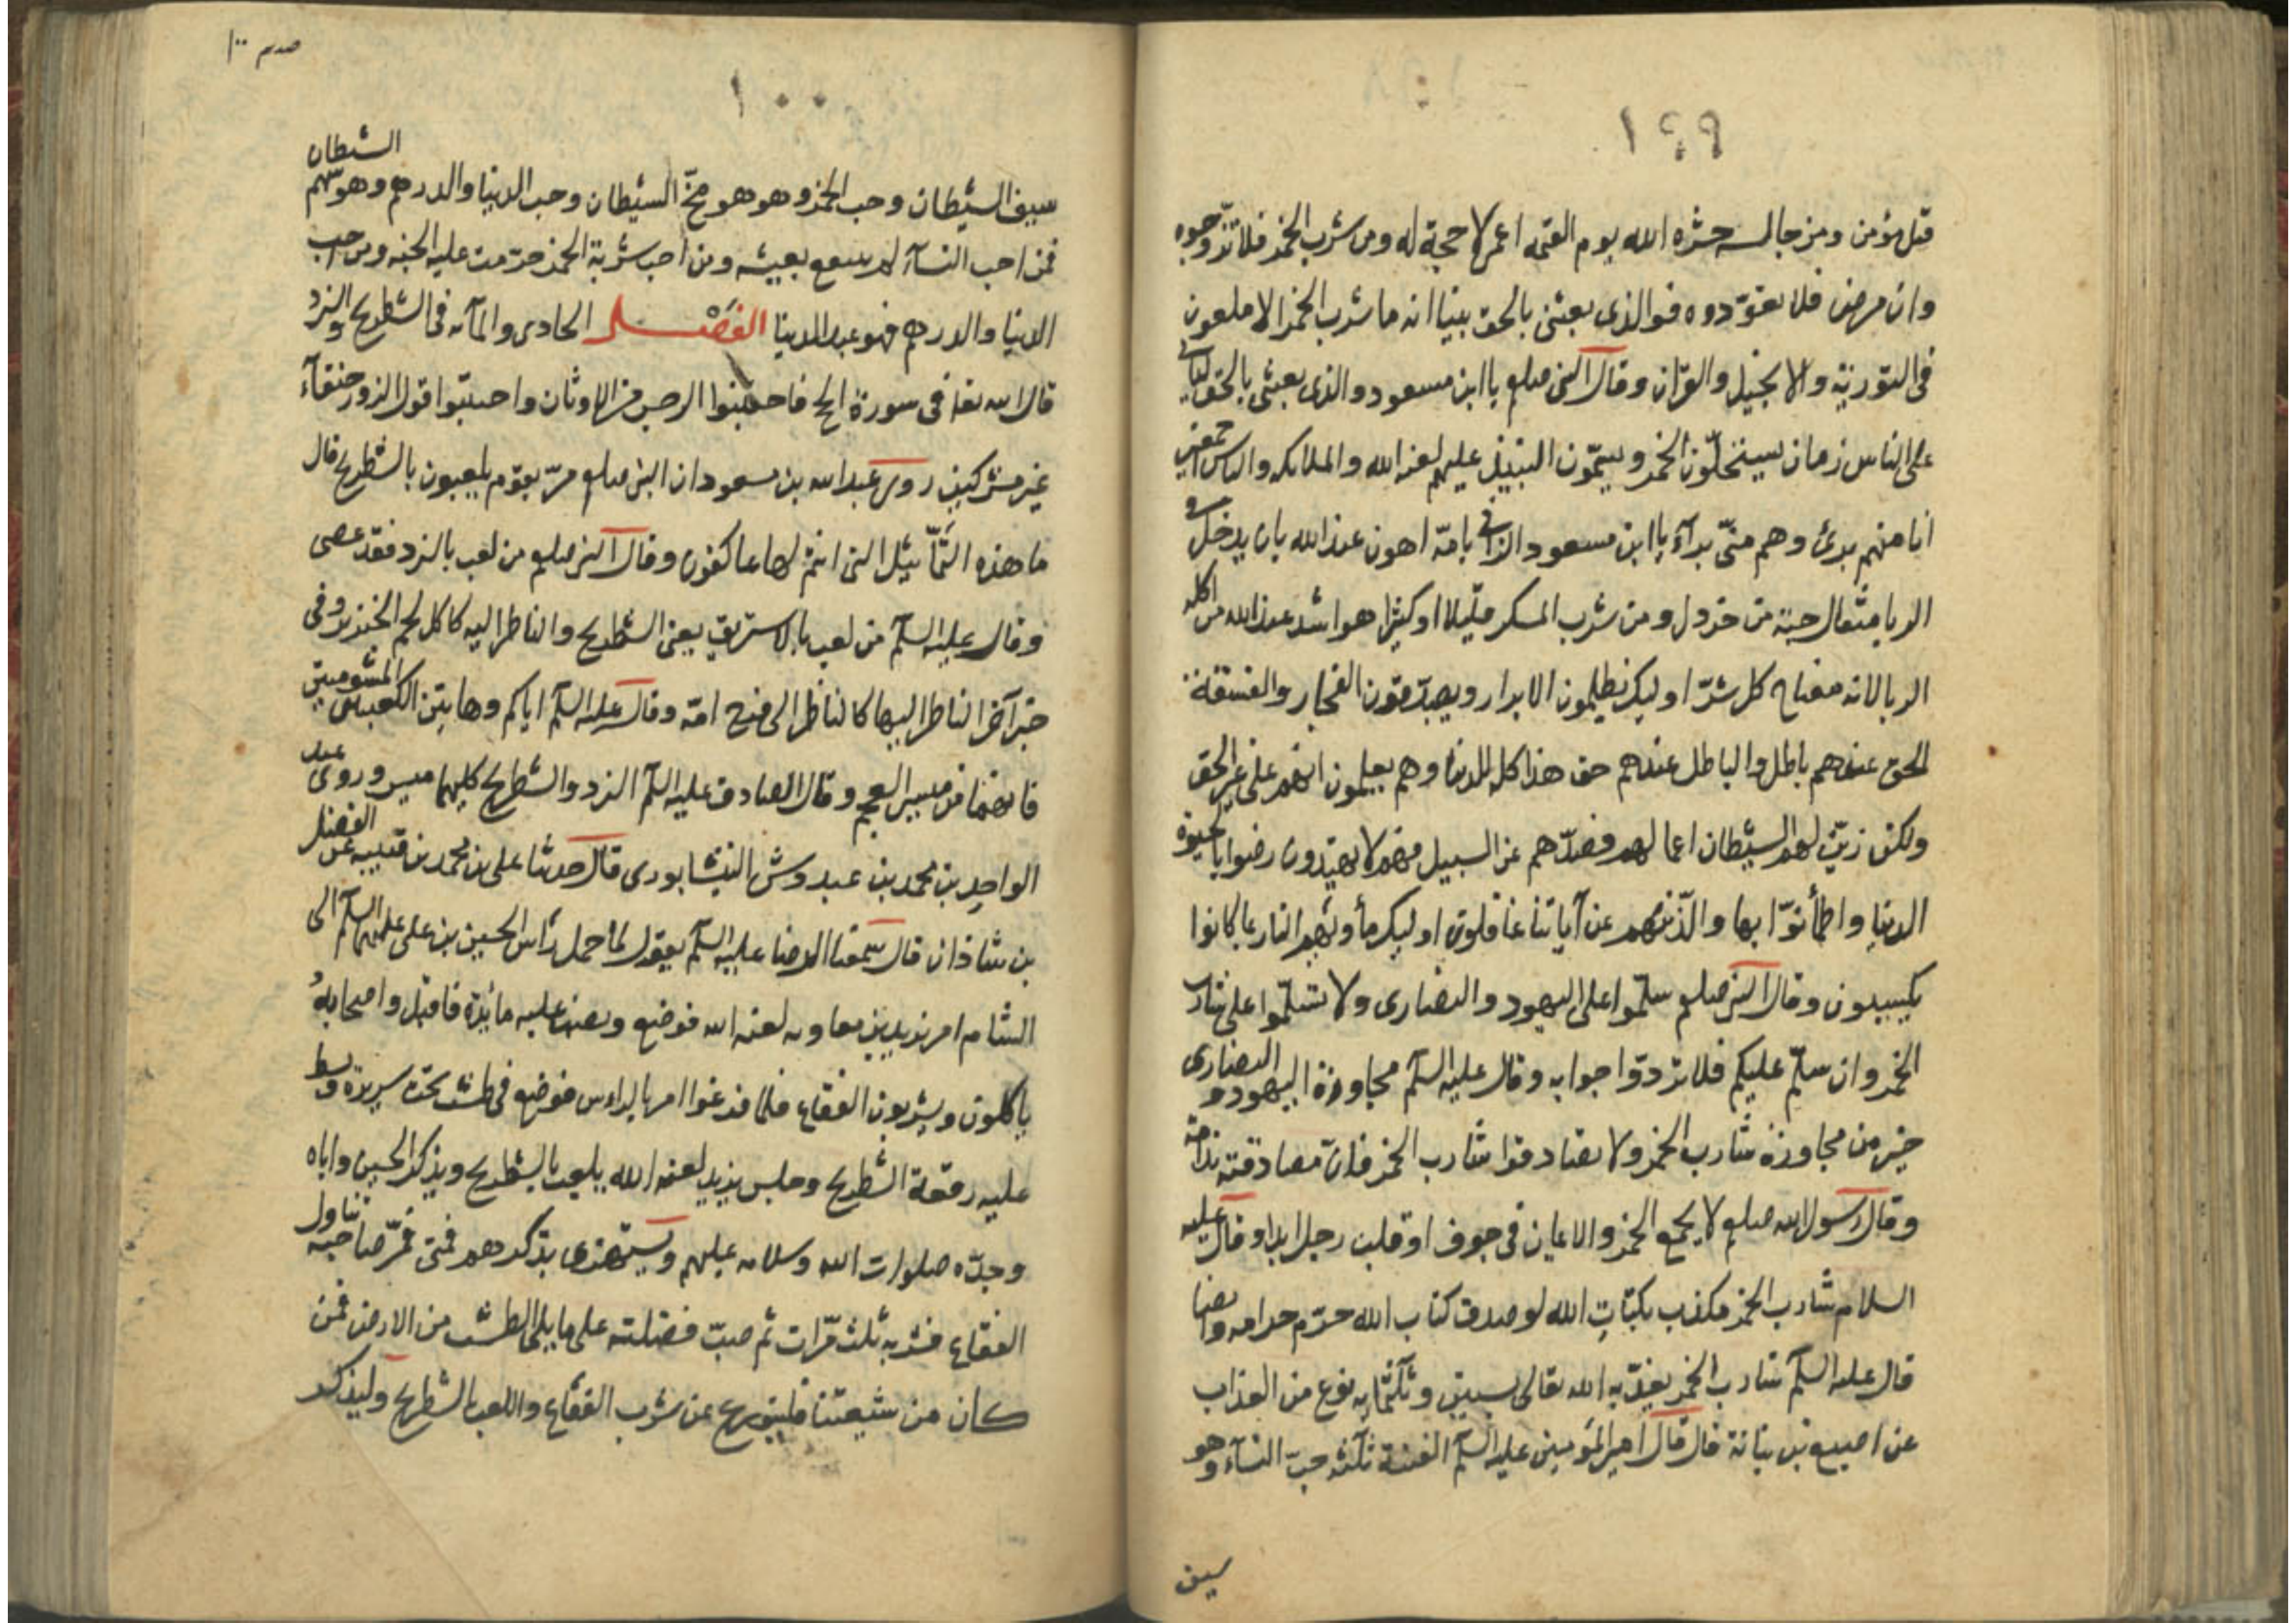 ١٩٩
قتل مؤمن ومن جالسه حشره الله يوم القيمه اعمى لا حجة له ومن شرب الخمر فلا تزوجوه
وان مرض فلا تعودوه فوالذى بعثنى بالحق نبيا انه ما شرب الخمر الا ملعون
فى التورية والانجيل والقرآن وقال النبى صلعم يا ابن مسعود والذى بعثنى بالحق لياتى
على الناس زمان يستحلّون الخمر ويسمّون النبيذ عليهم لعنة الله والملائكه والناس اجمعين
انا منهم برئ وهم منّى برآء يا ابن مسعود الزانى بامّه اهون عند الله بان يدخل فى
الربا مثقال حبة من خردل ومن شرب المسكر قليلا او كثيرا هو اشد عند الله من اكله
الربا لانه مفتاح كل شرّ اوليك يظلمون الابرار ويصدّقون الفجار والفسقة
الحق عندهم باطل والباطل عندهم حق هذا كله للدنيا وهم يعلمون انهم على غير الحق
ولكن زيّن لهم الشيطان اعمالهم فصدّهم عن السبيل فهم لا يهتدون رضوا بالحيوة
الدنيا واطمأنّوا بها والّذينهم عن آياتنا غافلون اوليك مأويهم النار بما كانوا
يكسبون وقال النبى صلعم سلّموا على اليهود والنصارى ولا تسلّموا على شارب
الخمر وان سلّم عليكم فلا تردّوا جوابه وقال عليه السلم مجاورة اليهود و النصارى
خير من مجاورة شارب الخمر ولا تصادقوا شارب الخمر فان مصادقته ندامة
وقال رسول الله صلعم لا يجمع الخمر والايمان فى جوف او قلب رجل ابدا وقال عليه
السلام شارب الخمر مكذب بكتاب الله لو صدق كتاب الله حرّم حرامه وايضا
قال عليه السلم شارب الخمر يعذّبه الله تعالى بستين وثلثمايه نوع من العذاب
عن اصبغ بن بناتة قال قال امير المؤمنين عليه السلم الفتنة ثلثه حبّ النسآء وهو
سيف
١٠٠
سيف الشيطان وحب الخمر وهو هو فخّ الشيطان وحب الدينا والدرهم وهو سهم الشيطان
فمن احب النسآء لم ينتفع بعيشه ومن احب شربة الخمر حرّمت عليه الجنه ومن احب
الدينا والدرهم فهو عبد الدينا الفصل الحادى والمآئه فى الشطرنج والنرد
قال الله تعا فى سورة الحج فاجتنبوا الرجس من الاوثان واجتنبوا قول الزور حنفآء
غير مشركين روى عبد الله بن مسعود ان النبى صلعم مرّ بقوم يلعبون بالشطرنج قال
ما هذه التّماثيل التى انتم لها عاكفون وقال النبى صلعم من لعب بالنرد فقد عصى
وقال عليه السلم من لعب بالاستريق يعنى الشطرنج والناظر اليه كاكل لحم الخنزير وفى
خبر آخر الناظر اليها كالناظر الى فرج امّه وقال عليه السلم اياكم وهاتين الكعبتين المشومتين
فانهما من ميسر العجم وقال الصادق عليه السلم النرد والشطرنج كليهما ميسر وروى عبد
الواحد بن محمد بن عبدوش النيشابورى قال حدثنا على بن محمد بن قتيبه عن الفضل
بن شاذان قال سمعنا الرضا عليه السلم يقول لما حمل رأس الحسين بن على عليهما السلم الى
الشام امر يزيد بن معاويه لعنه الله فوضع ونصب عليه مائدة فاقبل واصحابهُ
ياكلون ويشربون الفقاع فلما فرغوا امر بالراس فوضع فى طشت تحت سريره وبسط
عليه رقعة الشطرنج وجلس يزيد لعنه الله يلعب بالشطرنج ويذكر الحسين واباه
وجدّه صلوات الله وسلامه عليهم ويستهزى بذكرهم فمتى قمر صاحبه تناول
الفقاع فشربه ثلث مرّات ثم صبّ فضلته على ما يلى الطشت من الارض فمن
كان من شيعتنا فليتورع عن شرب الفقاع واللعب بالشطرنج وليذكر